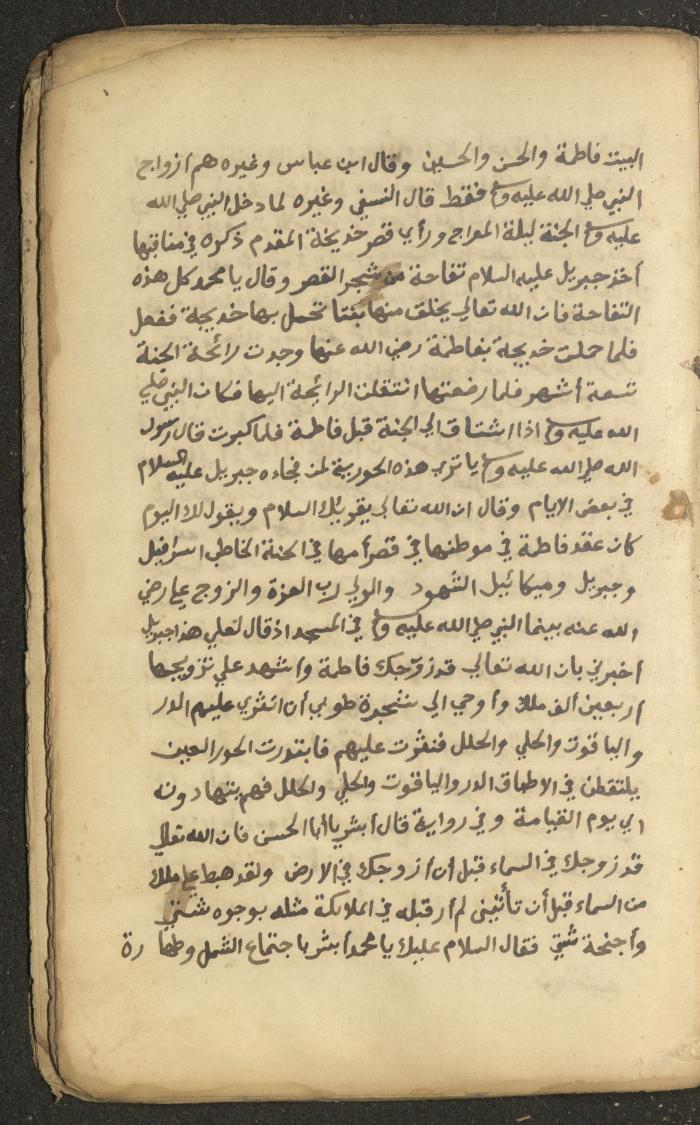 البيت فاطمة والحسن والحسين وقال ابن عباس وغيره هم أزواج
النبي صلي الله عليه وع فقط قال النسفي وغيره لما دخل النبي صلي الله
عليه وع الجنة ليلة المعراج ورأي قصر خديخة المقدم ذكره في مناقبها
أخذ جبريل عليه السلام تفاحة من شجر القصر وقال يا محمد كل هذه
التفاحة فان الله تعالي يخلق منها بنتا تحمل بها خديجة ففعل
فلما حملت خديجة بفاطمة رضي الله عنها وجدت رائحة الجنة
تسعة أشهر فلما وضعتها انتقلت الرائحة اليها فكان النبي صلي
الله عليه وع اذا اشتاق الي الجنة قبل فاطمة فلما كبرت قال رسول
الله صلي الله عليه وع يا تري هذه الحورية لمن فجاءه جبريل عليه السلام
في بعض الايام وقال ان الله تعالي يقريك السلام ويقول لك اليوم
كان عقد فاطمة في موطنها في قصر أمها في الجنة الخاطب اسرافيل
وجبريل وميكائيل الشهود والولي رب العزة والزوج علي رضي
الله عنه بينما النبي صلي الله عليه وع في المسجد اذ قال لعلي هذا جبريل
أخبرني بان الله تعالي قد زوّجك فاطمة وأشهد علي تزويجها
أربعين ألف ملك وأوحي الي شجرة طوبي أن انثري عليهم الدر
والياقوت والحلي والحلل فنثرت عليهم فابتدرت الحور العين
يلتقطن في الاطباق الدر والياقوت والحلي والحلل فهم يتهادونه
الي يوم القيامة وفي رواية قال أبشر يا أبا الحسن فان الله تعالي
قد زوجك في السماء قبل أن أزوجك في الارض ولقد هبط علي ملك
من السماء قبل أن تأتيني لم أر قبله في الملائكة مثله بوجوه شتي
وأجنحة شتي فقال السلام عليك يا محمد أبشر باجتماع الشمل وطها رة